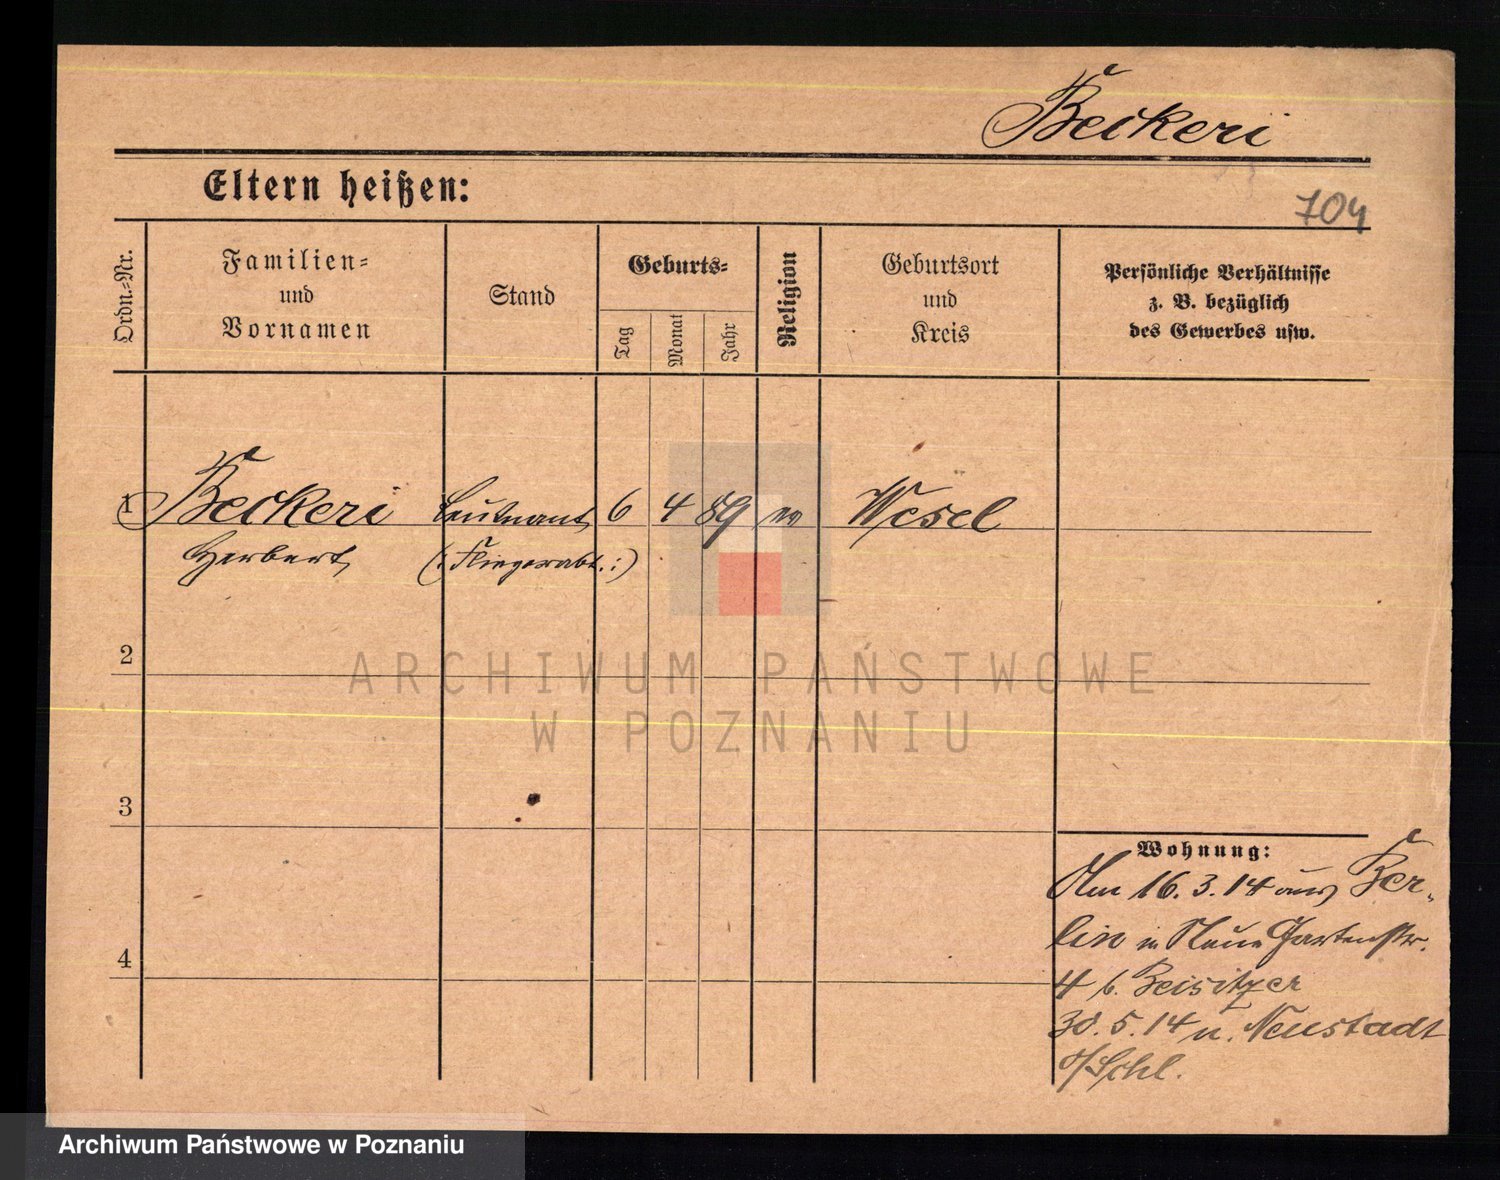 Beckeri
Eltern heißen:
704
Ordn.-Nr.
Familien-
und
Vornamen
Stand
Geburts-
Tag
Monat
Jahr
Religion
Geburtsort
und
Kreis
Persönliche Verhältnisse
z. B. bezüglich
des Gewerbes usw.
1 Beckeri Leutnant 6 4 89 ev Wesel
Herbert (: Fliegerabt. :)
2
ARCHIWUM PAŃSTWOWE
W POZNANIU
3
Wohnung:
Am 16.3.14 aus Ber-
lin in Neue Gartenstr.
4
4 b. Beisitzer
30.5.14 n. Neustadt
o/Schl.
Archiwum Państwowe w Poznaniu